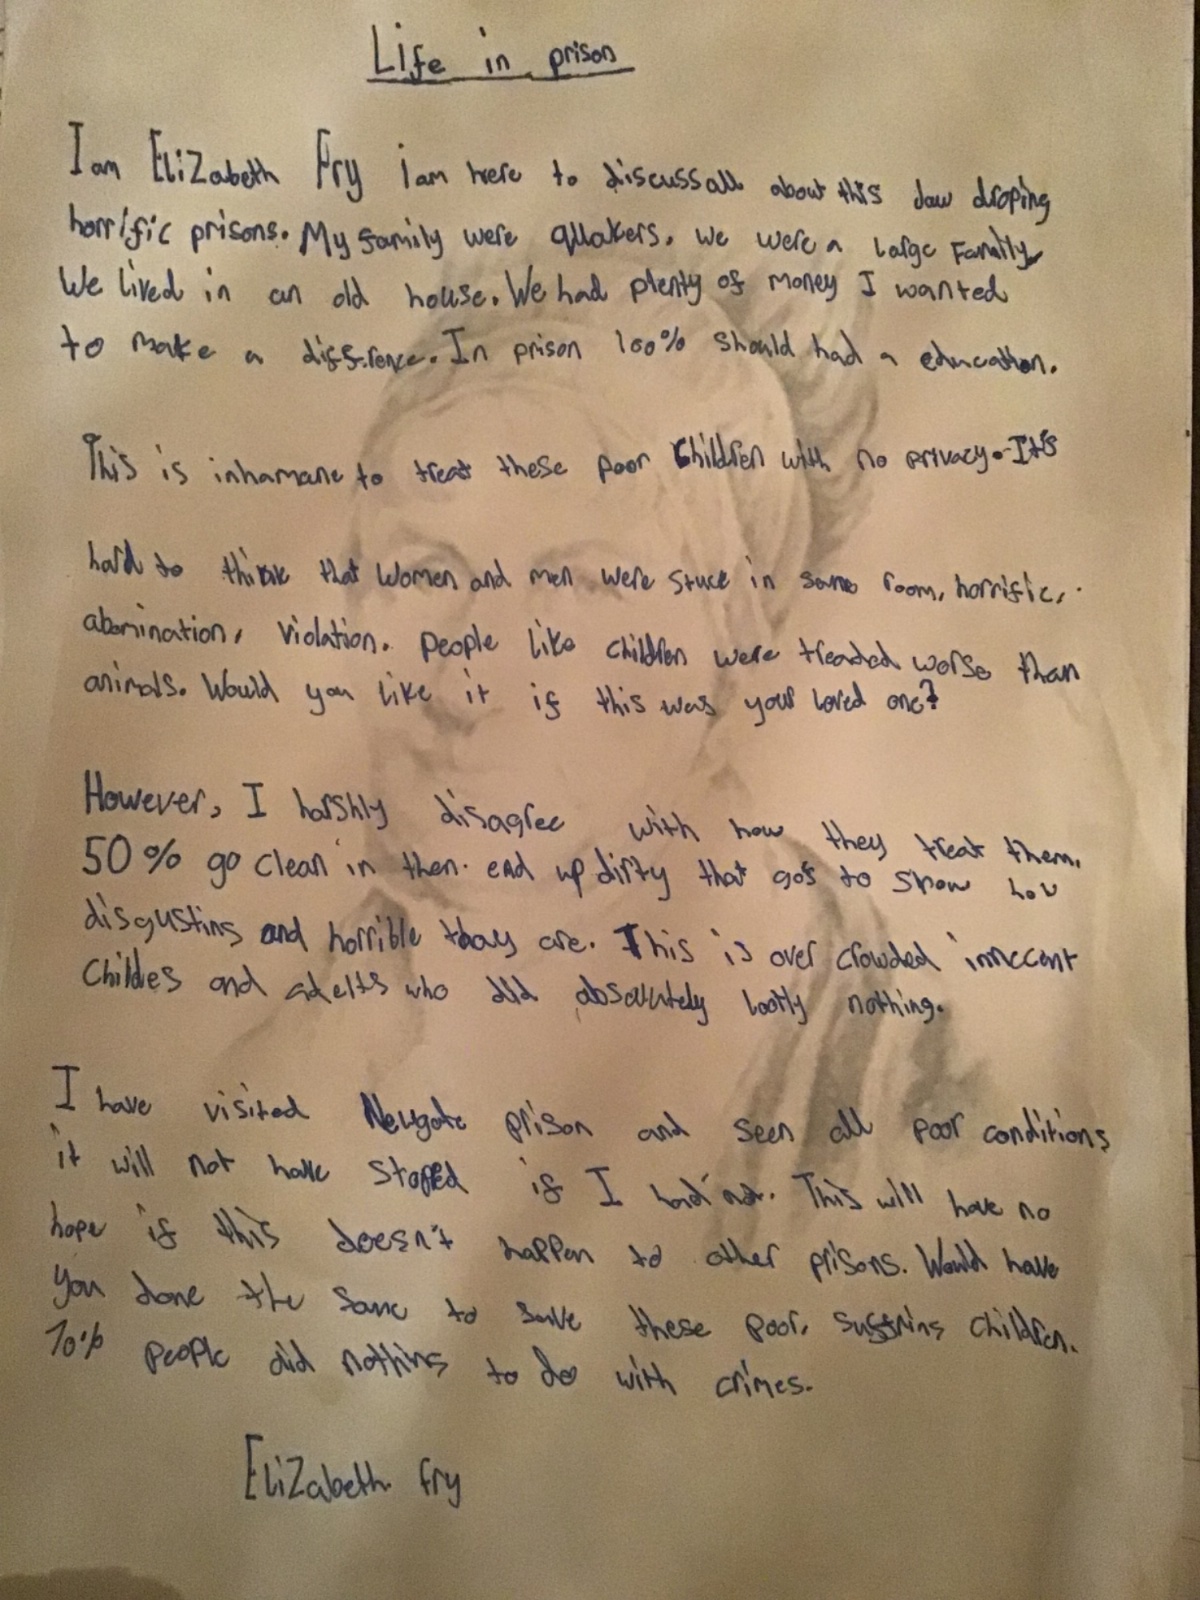 Life in prison
I am EliZabeth Fry i am here to discuss all about this Jaw droping
horrific prisons. My family were quakers. we were a large Family
We lived in an old house. We had plenty of money I wanted
to make a difference. In prison 100% should had a education.
This is inhamane to treat these poor Children with no privacy. It's
hard to think that women and men were stuck in same room, horrific,
abomination, violation. people like children were treaded worse than
animals. Would you like it if this was your loved one?
However, I harshly disagree with how they treat them.
50% go clean in then end up dirty that gos to show how
disgusting and horrible thay are. This is over crowded innecent
Childes and adelts who did absolutely nothing.
I have visited Newgate prison and seen all poor conditions
it will not have stopped if I had not. This will have no
hope if this doesn't happen to other prisons. Would have
you done the same to save these poor, children.
70% people did nothing to do with crimes.
EliZabeth fry